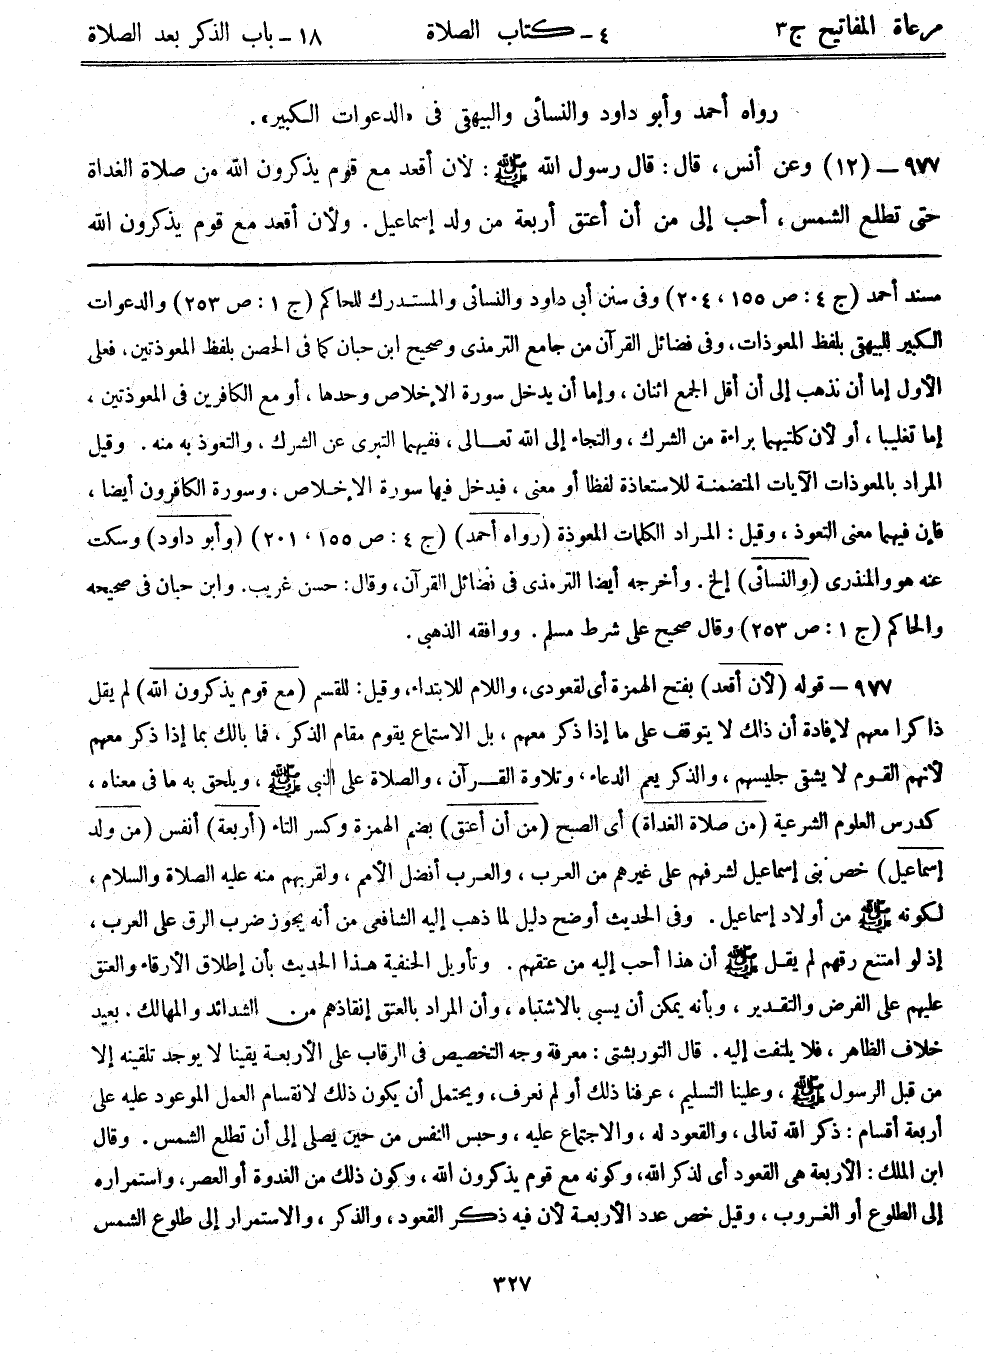 مرعاة المفاتيح ج٣ ٤ - كتاب الصلاة ١٨ - باب الذكر بعد الصلاة
رواه أحمد وأبو داود والنسائى والبيهقى فى «الدعوات الكبير».
٩٧٧ – (١٢) وعن أنس، قال: قال رسول الله ﷺ: لأن أقعد مع قوم يذكرون الله من صلاة الغداة
حتى تطلع الشمس، أحب إلى من أن أعتق أربعة من ولد إسماعيل. ولأن أقعد مع قوم يذكرون الله
مسند أحمد (ج ٤: ص ١٥٥، ٢٠٤) وفى سنن أبى داود والنسائى والمستدرك للحاكم (ج ١: ص ٢٥٣) والدعوات
الكبير للبيهقى بلفظ المعوذات، وفى فضائل القرآن من جامع الترمذى وصحيح ابن حبان كما فى الحصن بلفظ المعوذتين، فعلى
الأول إما أن نذهب إلى أن أقل الجمع اثنان، وإما أن يدخل سورة الإخلاص وحدها، أو مع الكافرين فى المعوذتين،
إما تغليبا، أو لأن كلتيهما براءة من الشرك، والتجاء إلى الله تعالى، ففيهما التبرى عن الشرك، والتعوذ به منه. وقيل
المراد بالمعوذات الآيات المتضمنة للاستعاذة لفظا أو معنى، فيدخل فيها سورة الإخلاص، وسورة الكافرون أيضا،
فإن فيهما معنى التعوذ، وقيل: المراد الكلمات المعوذة (رواه أحمد) (ج ٤: ص ١٥٥، ٢٠١) (وأبو داود) وسكت
عنه هو والمنذرى (والنسائى) إلخ. وأخرجه أيضا الترمذى فى فضائل القرآن، وقال: حسن غريب. وابن حبان فى صحيحه
والحاكم (ج ١: ص ٢٥٣) وقال صحيح على شرط مسلم. ووافقه الذهبى.
٩٧٧ – قوله (لأن أقعد) بفتح الهمزة أى لقعودى، واللام للابتداء، وقيل: للقسم (مع قوم يذكرون الله) لم يقل
ذاكرا معهم لإفادة أن ذلك لا يتوقف على ما إذا ذكر معهم، بل الاستماع يقوم مقام الذكر، فما بالك بما إذا ذكر معهم
لأنهم القوم لا يشقى جليسهم، والذكر يعم الدعاء، وتلاوة القرآن، والصلاة على النبى ﷺ، ويلحق به ما فى معناه،
كدرس العلوم الشرعية (من صلاة الغداة) أى الصبح (من أن أعتق) بضم الهمزة وكسر التاء (أربعة) أنفس (من ولد
إسماعيل) خص بنى إسماعيل لشرفهم على غيرهم من العرب، والعرب أفضل الأمم، ولقربهم منه عليه الصلاة والسلام،
لكونه ﷺ من أولاد إسماعيل. وفى الحديث أوضح دليل لما ذهب إليه الشافعى من أنه يجوز ضرب الرق على العرب،
إذ لو امتنع رقهم لم يقل ﷺ أن هذا أحب إليه من عتقهم. وتأويل الحنفية هذا الحديث بأن إطلاق الأرقاء والعتق
عليهم على الفرض والتقدير، وبأنه يمكن أن يسبى بالاشتباه، وأن المراد بالعتق إنقاذهم من الشدائد والمهالك. بعيد
خلاف الظاهر، فلا يلتفت إليه. قال التوربشتى: معرفة وجه التخصيص فى الرقاب على الأربعة يقينا لا يوجد تلقينه إلا
من قبل الرسول ﷺ، وعلينا التسليم، عرفنا ذلك أو لم نعرف، ويحتمل أن يكون ذلك لانقسام العمل الموعود عليه على
أربعة أقسام: ذكر الله تعالى، والقعود له، والاجتماع عليه، وحبس النفس من حين يصلى إلى أن تطلع الشمس. وقال
ابن الملك: الأربعة هى القعود أى لذكر الله، وكونه مع قوم يذكرون الله، وكون ذلك من الغدوة أو العصر، واستمراره
إلى الطلوع أو الغروب، وقيل خص عدد الأربعة لأن فيه ذكر القعود، والذكر، والاستمرار إلى طلوع الشمس
٣٢٧